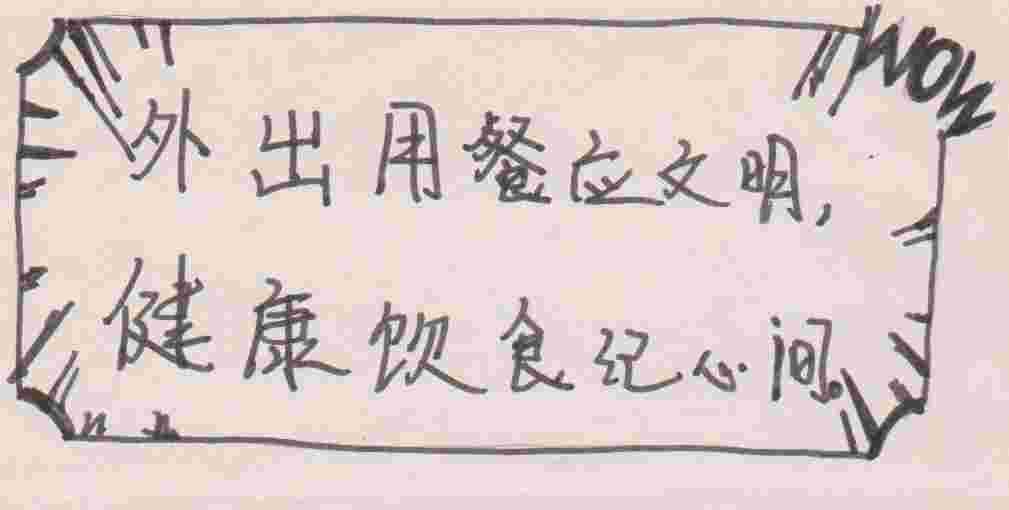 WOW
外出用餐应文明,
健康饮食记心间。